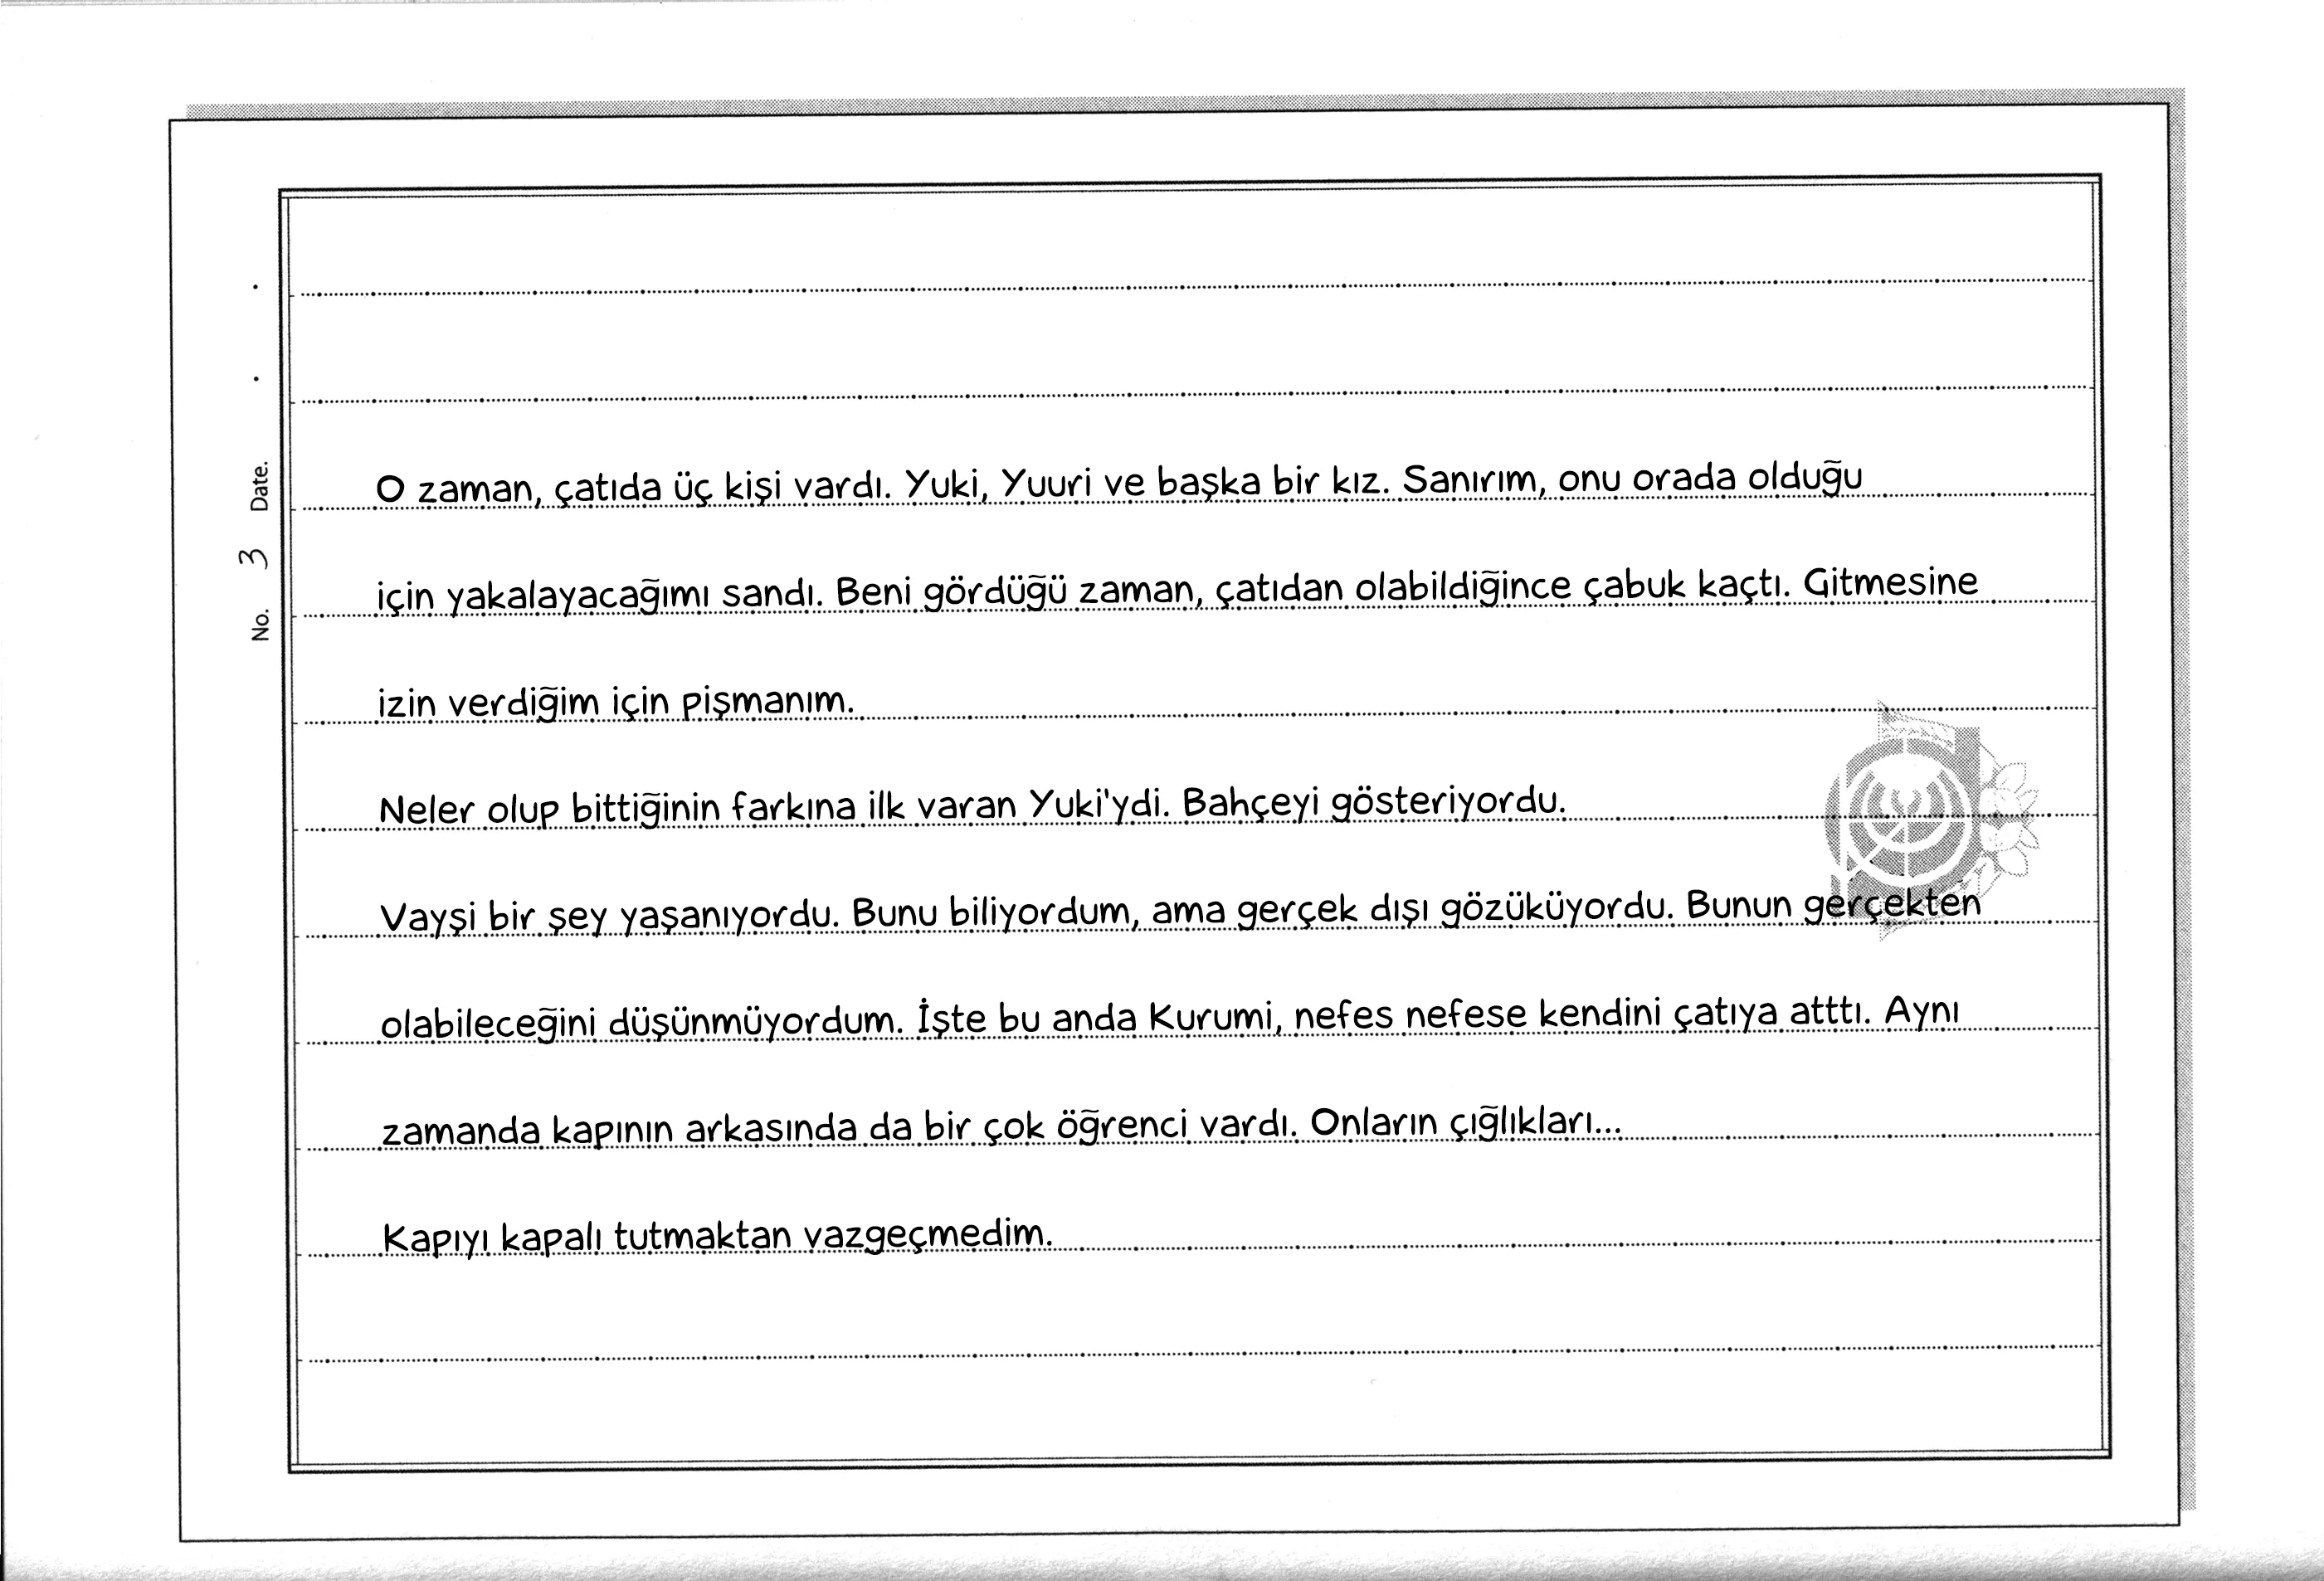 No. 3 Date. . .
O zaman, çatıda üç kişi vardı. Yuki, Yuuri ve başka bir kız. Sanırım, onu orada olduğu
için yakalayacağımı sandı. Beni gördüğü zaman, çatıdan olabildiğince çabuk kaçtı. Gitmesine
izin verdiğim için pişmanım.
Neler olup bittiğinin farkına ilk varan Yuki'ydi. Bahçeyi gösteriyordu.
Vayşi bir şey yaşanıyordu. Bunu biliyordum, ama gerçek dışı gözüküyordu. Bunun gerçekten
olabileceğini düşünmüyordum. İşte bu anda Kurumi, nefes nefese kendini çatıya atttı. Aynı
zamanda kapının arkasında da bir çok öğrenci vardı. Onların çığlıkları...
Kapıyı kapalı tutmaktan vazgeçmedim.